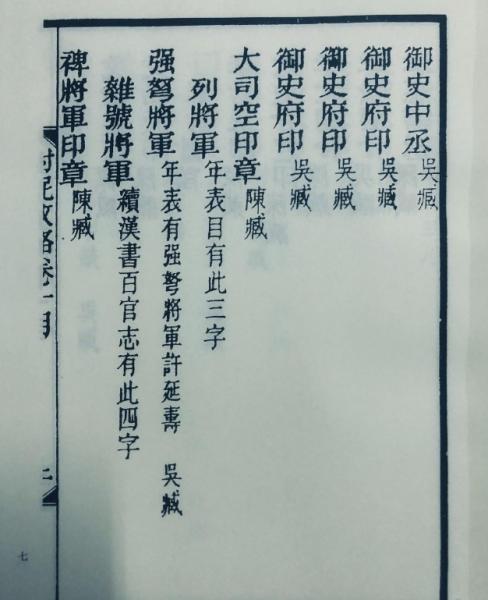 御史中丞 吳臧
御史府印 吳臧
御史府印 吳臧
御史府印 吳臧
大司空印章 陳臧
列將軍 年表目有此三字
强弩將軍 年表有强弩將軍許延壽 吳臧
雜號將軍 續漢書百官志有此四字
裨將軍印章 陳臧
封泥攷略卷一目
七